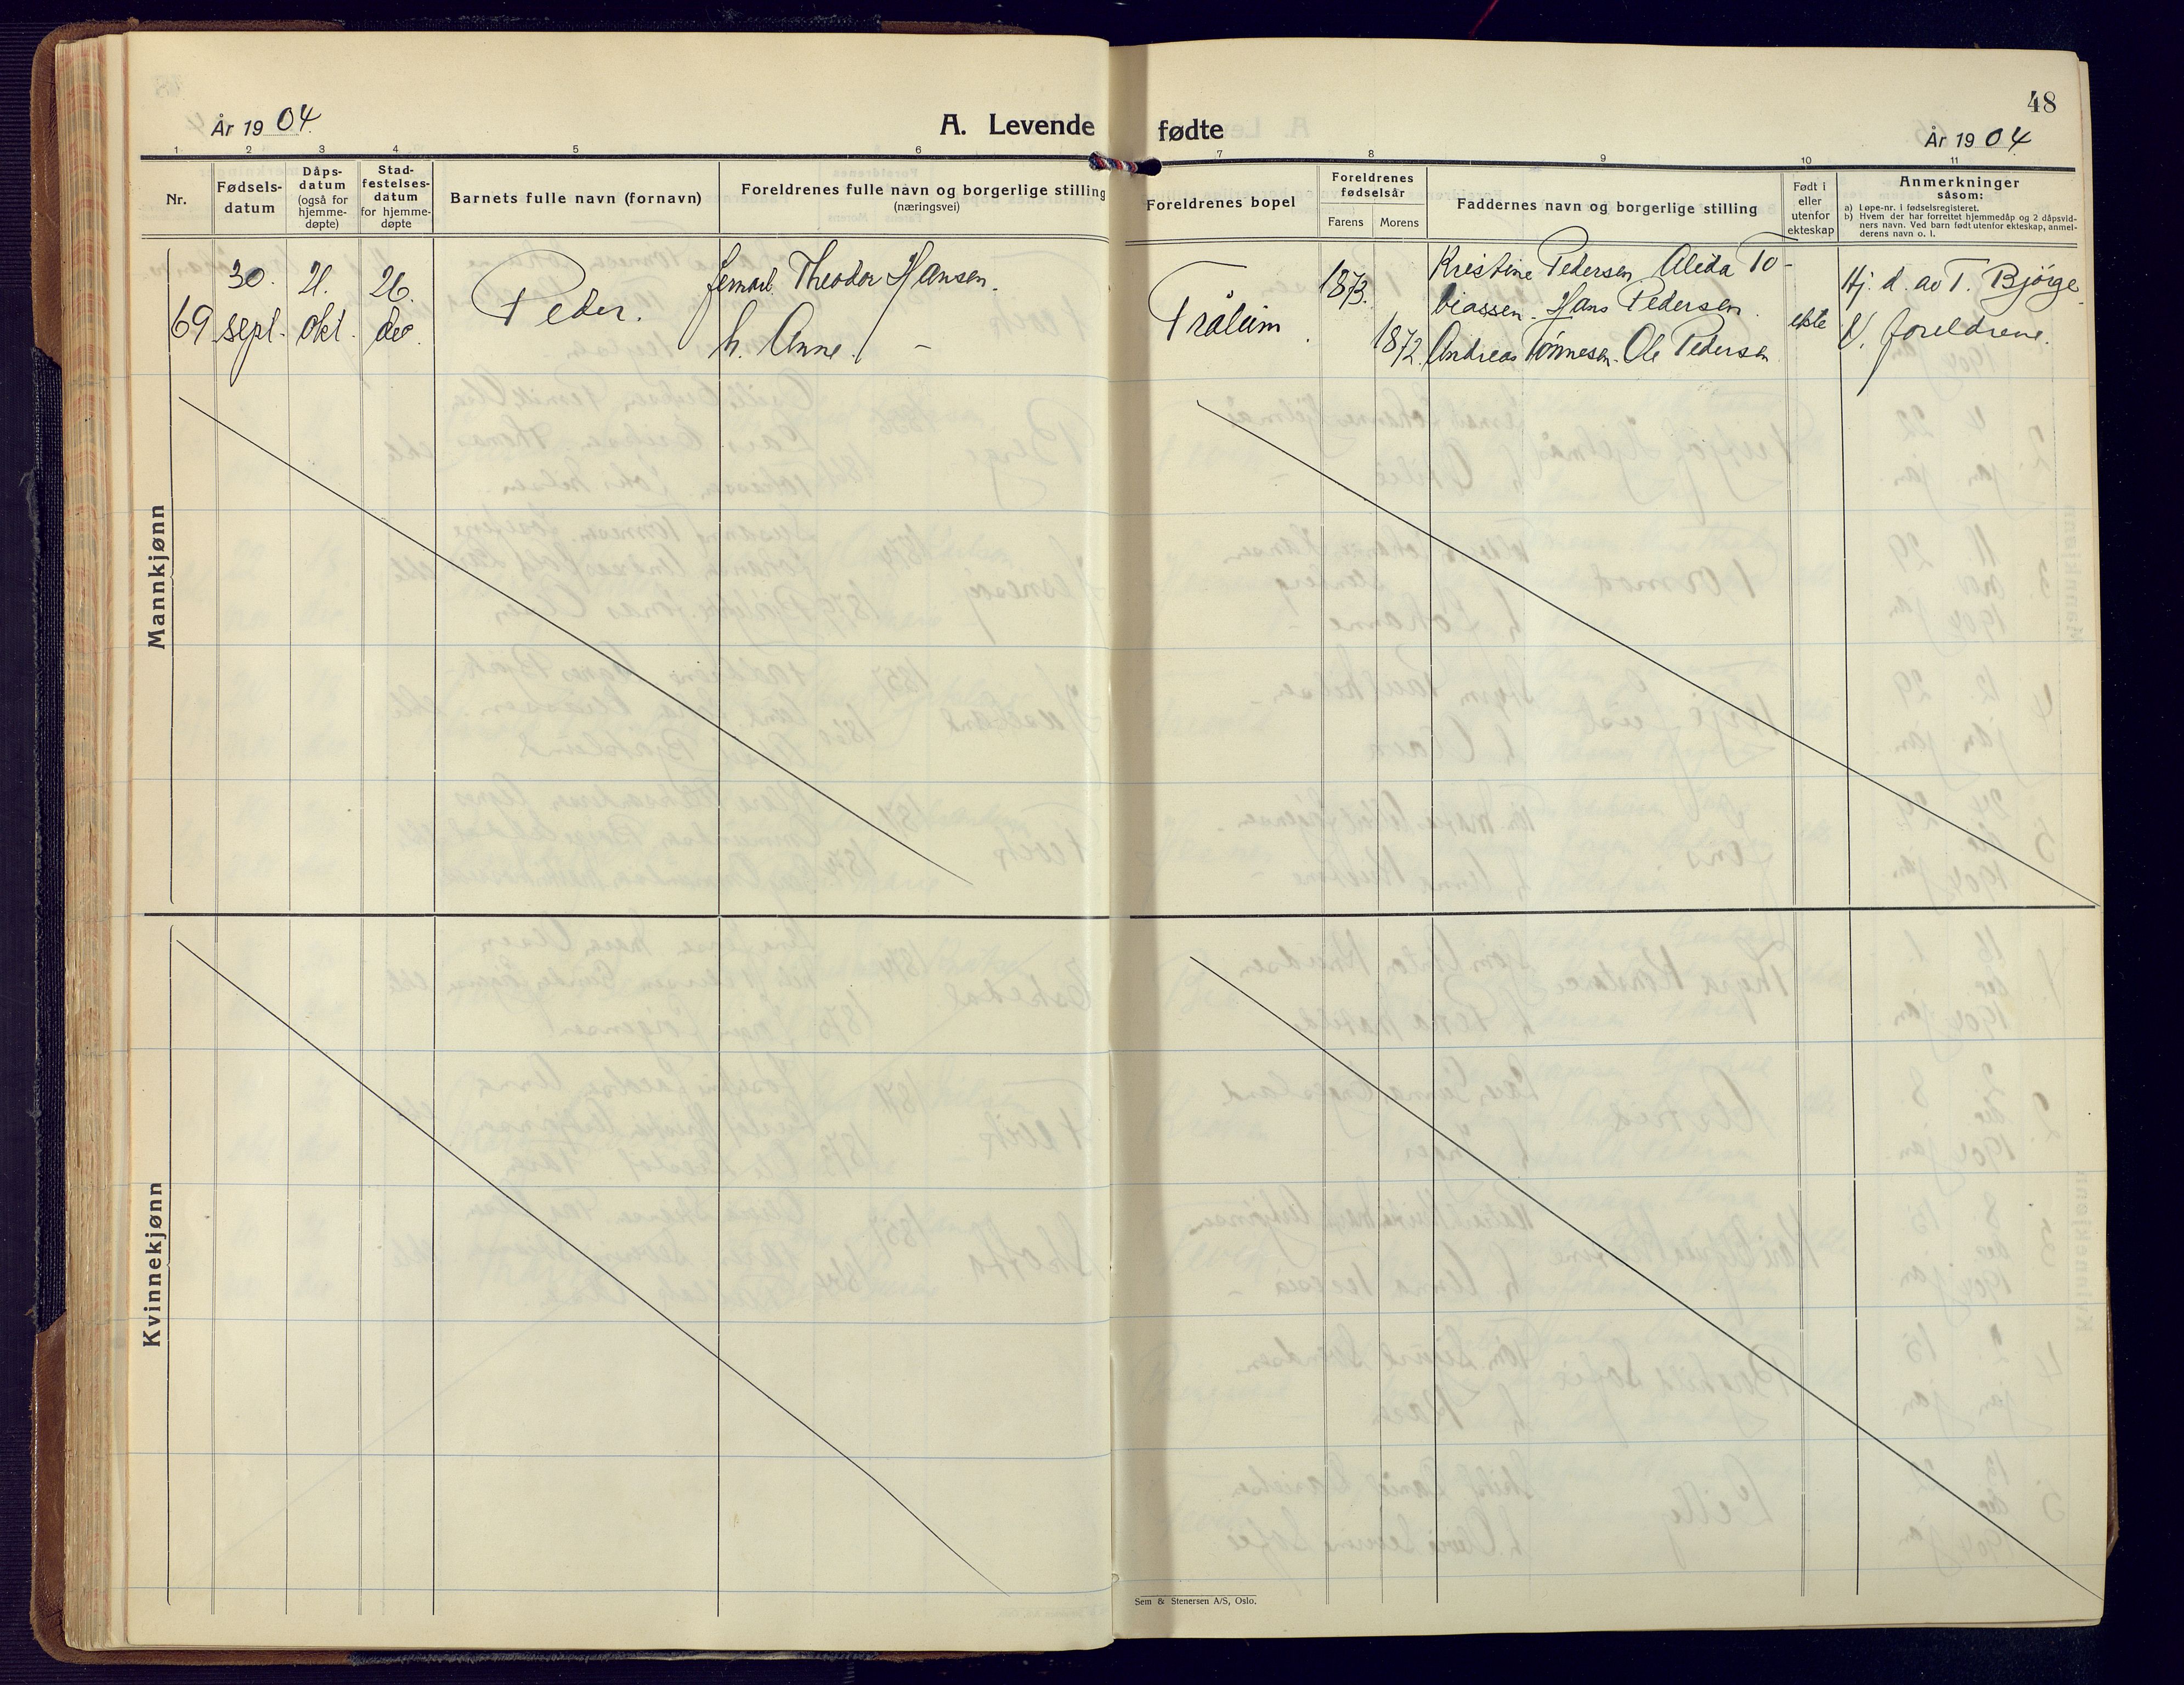 48
År 1904.
A. Levende fødte
År 1904
1 2 3 4 5 6 7 8 9 10 11
Nr.
Fødsels-
datum
Dåps-
datum
(også for
hjemme-
døpte)
Stad-
festelses-
datum
for hjemme-
døpte
Barnets fulle navn (fornavn)
Foreldrenes fulle navn og borgerlige stilling
(næringsvei)
Foreldrenes bopel
Foreldrenes
fødselsår
Farens Morens
Faddernes navn og borgerlige stilling
Født i
eller
utenfor
ekteskap
Anmerkninger
såsom:
a) Løpe-nr. i fødselsregisteret.
b) Hvem der har forrettet hjemmedåp og 2 dåpsvid-
ners navn. Ved barn født utenfor ekteskap, anmel-
derens navn o. l.
Mannkjønn
69
30.
sept.
21.
okt.
26.
des.
Peder.
Theodor Hansen.
h. Anne. -
Tråleim.
1873.
1872.
Kristine Pedersen, Alida To-
biassen. Hans Pedersen.
Andreas Tønnesen. Ole Pedersen
ekte
Hj. d. av T. Bjørge.
V. foreldrene.
Kvinnekjønn
Sem & Stenersen A/S, Oslo.